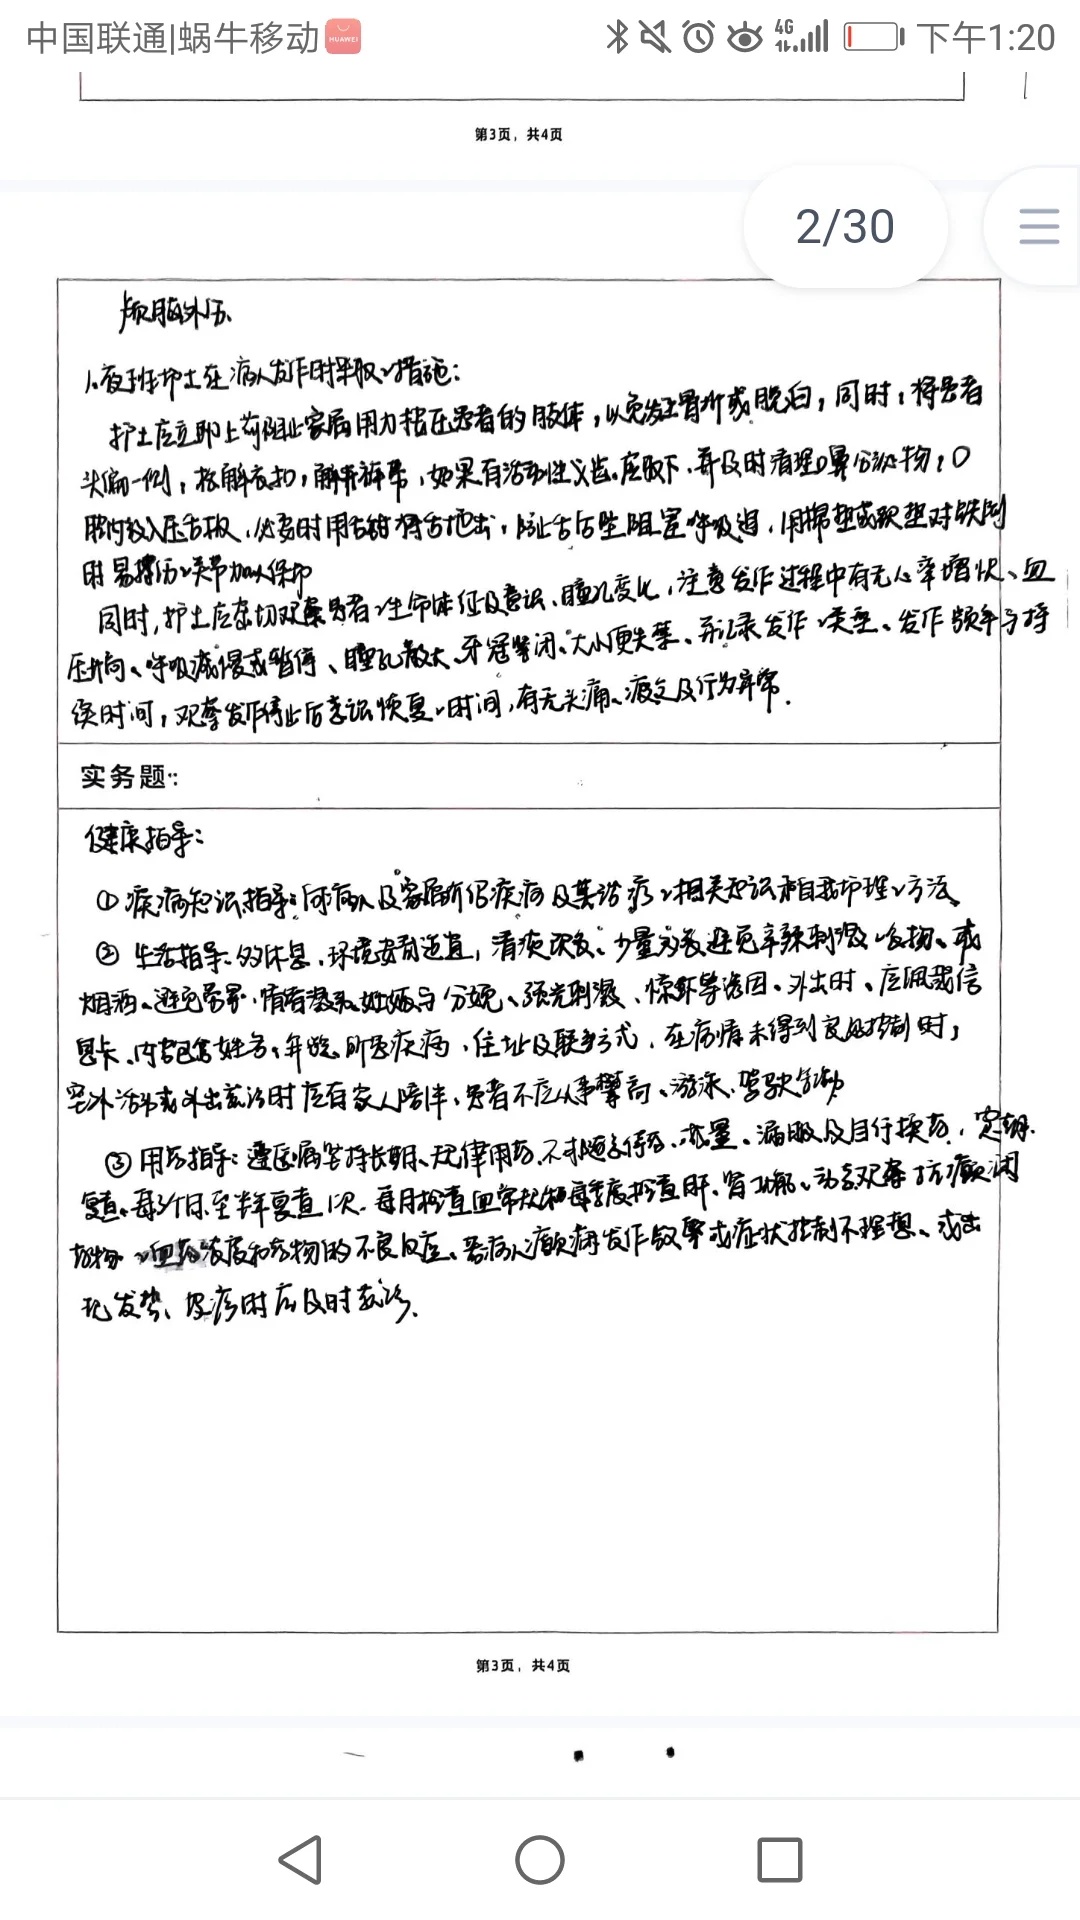 中国联通|蜗牛移动 HUAWEI 4G 下午1:20
第3页，共4页
2/30
颅脑外伤
1.夜班护士在病人发作时采取措施：
护士应立即上前阻止家属用力按压患者的肢体，以免发生骨折或脱臼，同时，将患者
头偏一侧，松解衣扣，解开裤带，如果有活动性义齿应取下，并及时清理口鼻分泌物，口
腔内放入压舌板，必要时用舌钳将舌拖出，防止舌后坠阻塞呼吸道，用棉垫或软垫对
时易擦伤关节加以保护
同时，护士应密切观察患者生命体征及意识、瞳孔变化，注意发作过程中有无心率增快、血
压升高、呼吸减慢或暂停、瞳孔散大、牙冠紧闭、大小便失禁、并记录发作类型、发作频率与持
续时间，观察发作停止后意识恢复时间，有无头痛、疲乏及行为异常.
实务题:
健康指导：
①疾病知识指导：向病人及家属介绍疾病及其治疗相关知识和自我护理方法
②生活指导、多休息、环境安静适宜，清淡饮食、少量多食避免辛辣刺激食物、或
烟酒、避免劳累、情绪激动、妊娠与分娩、强光刺激、惊吓等诱因、外出时、应佩戴信
息卡、内容包含姓名、年龄、所患疾病、住址及联系方式，在病情未得到良好控制时，
室外活动或外出就诊时应有家人陪伴、患者不应从事攀高、游泳、驾驶等活动
③用药指导：遵医嘱坚持长期、规律用药、不可随意停药、减量、漏服及自行换药，定期
复查、每3个月至半年复查1次，每月检查血常规和每季度检查肝、肾功能、动态观察抗癫痫
药物血药浓度和药物的不良反应、若病人癫痫发作频繁或症状控制不理想、或出
现发热、皮疹时应及时就诊.
第3页，共4页